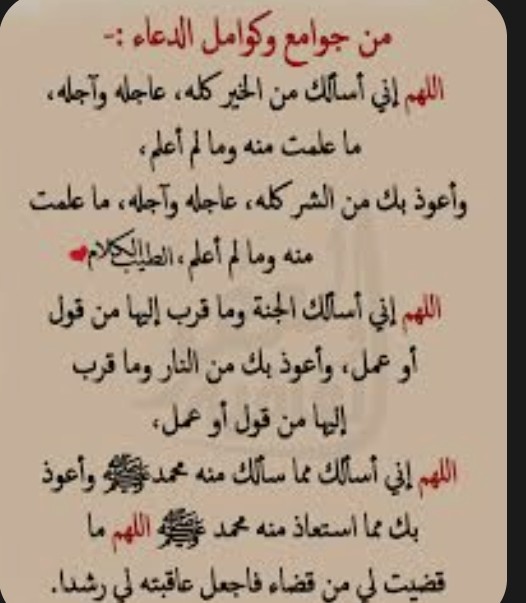 من جوامع وكوامل الدعاء :-
اللهم إني أسألك من الخير كله، عاجله وآجله،
ما علمت منه وما لم أعلم،
وأعوذ بك من الشر كله، عاجله وآجله، ما علمت
منه وما لم أعلم، الكلام الطيب
اللهم إني أسألك الجنة وما قرب إليها من قول
أو عمل، وأعوذ بك من النار وما قرب
إليها من قول أو عمل،
اللهم إني أسألك مما سألك منه محمد ﷺ وأعوذ
بك مما استعاذ منه محمد ﷺ اللهم ما
قضيت لي من قضاء فاجعل عاقبته لي رشدا.